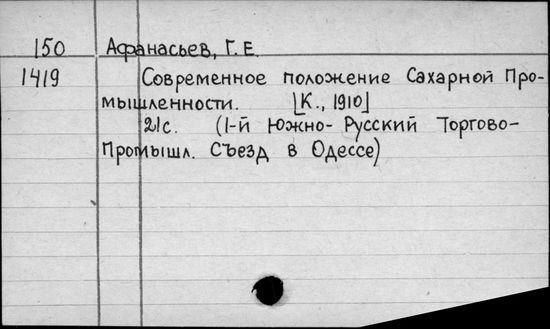 150 Афанасьев, Г. Е.
1419 Современное положение Сахарной Про-
мышленности. [К., 1910]
21с. (1-й Южно-Русский Торгово-
Промышл. Съезд в Одессе)